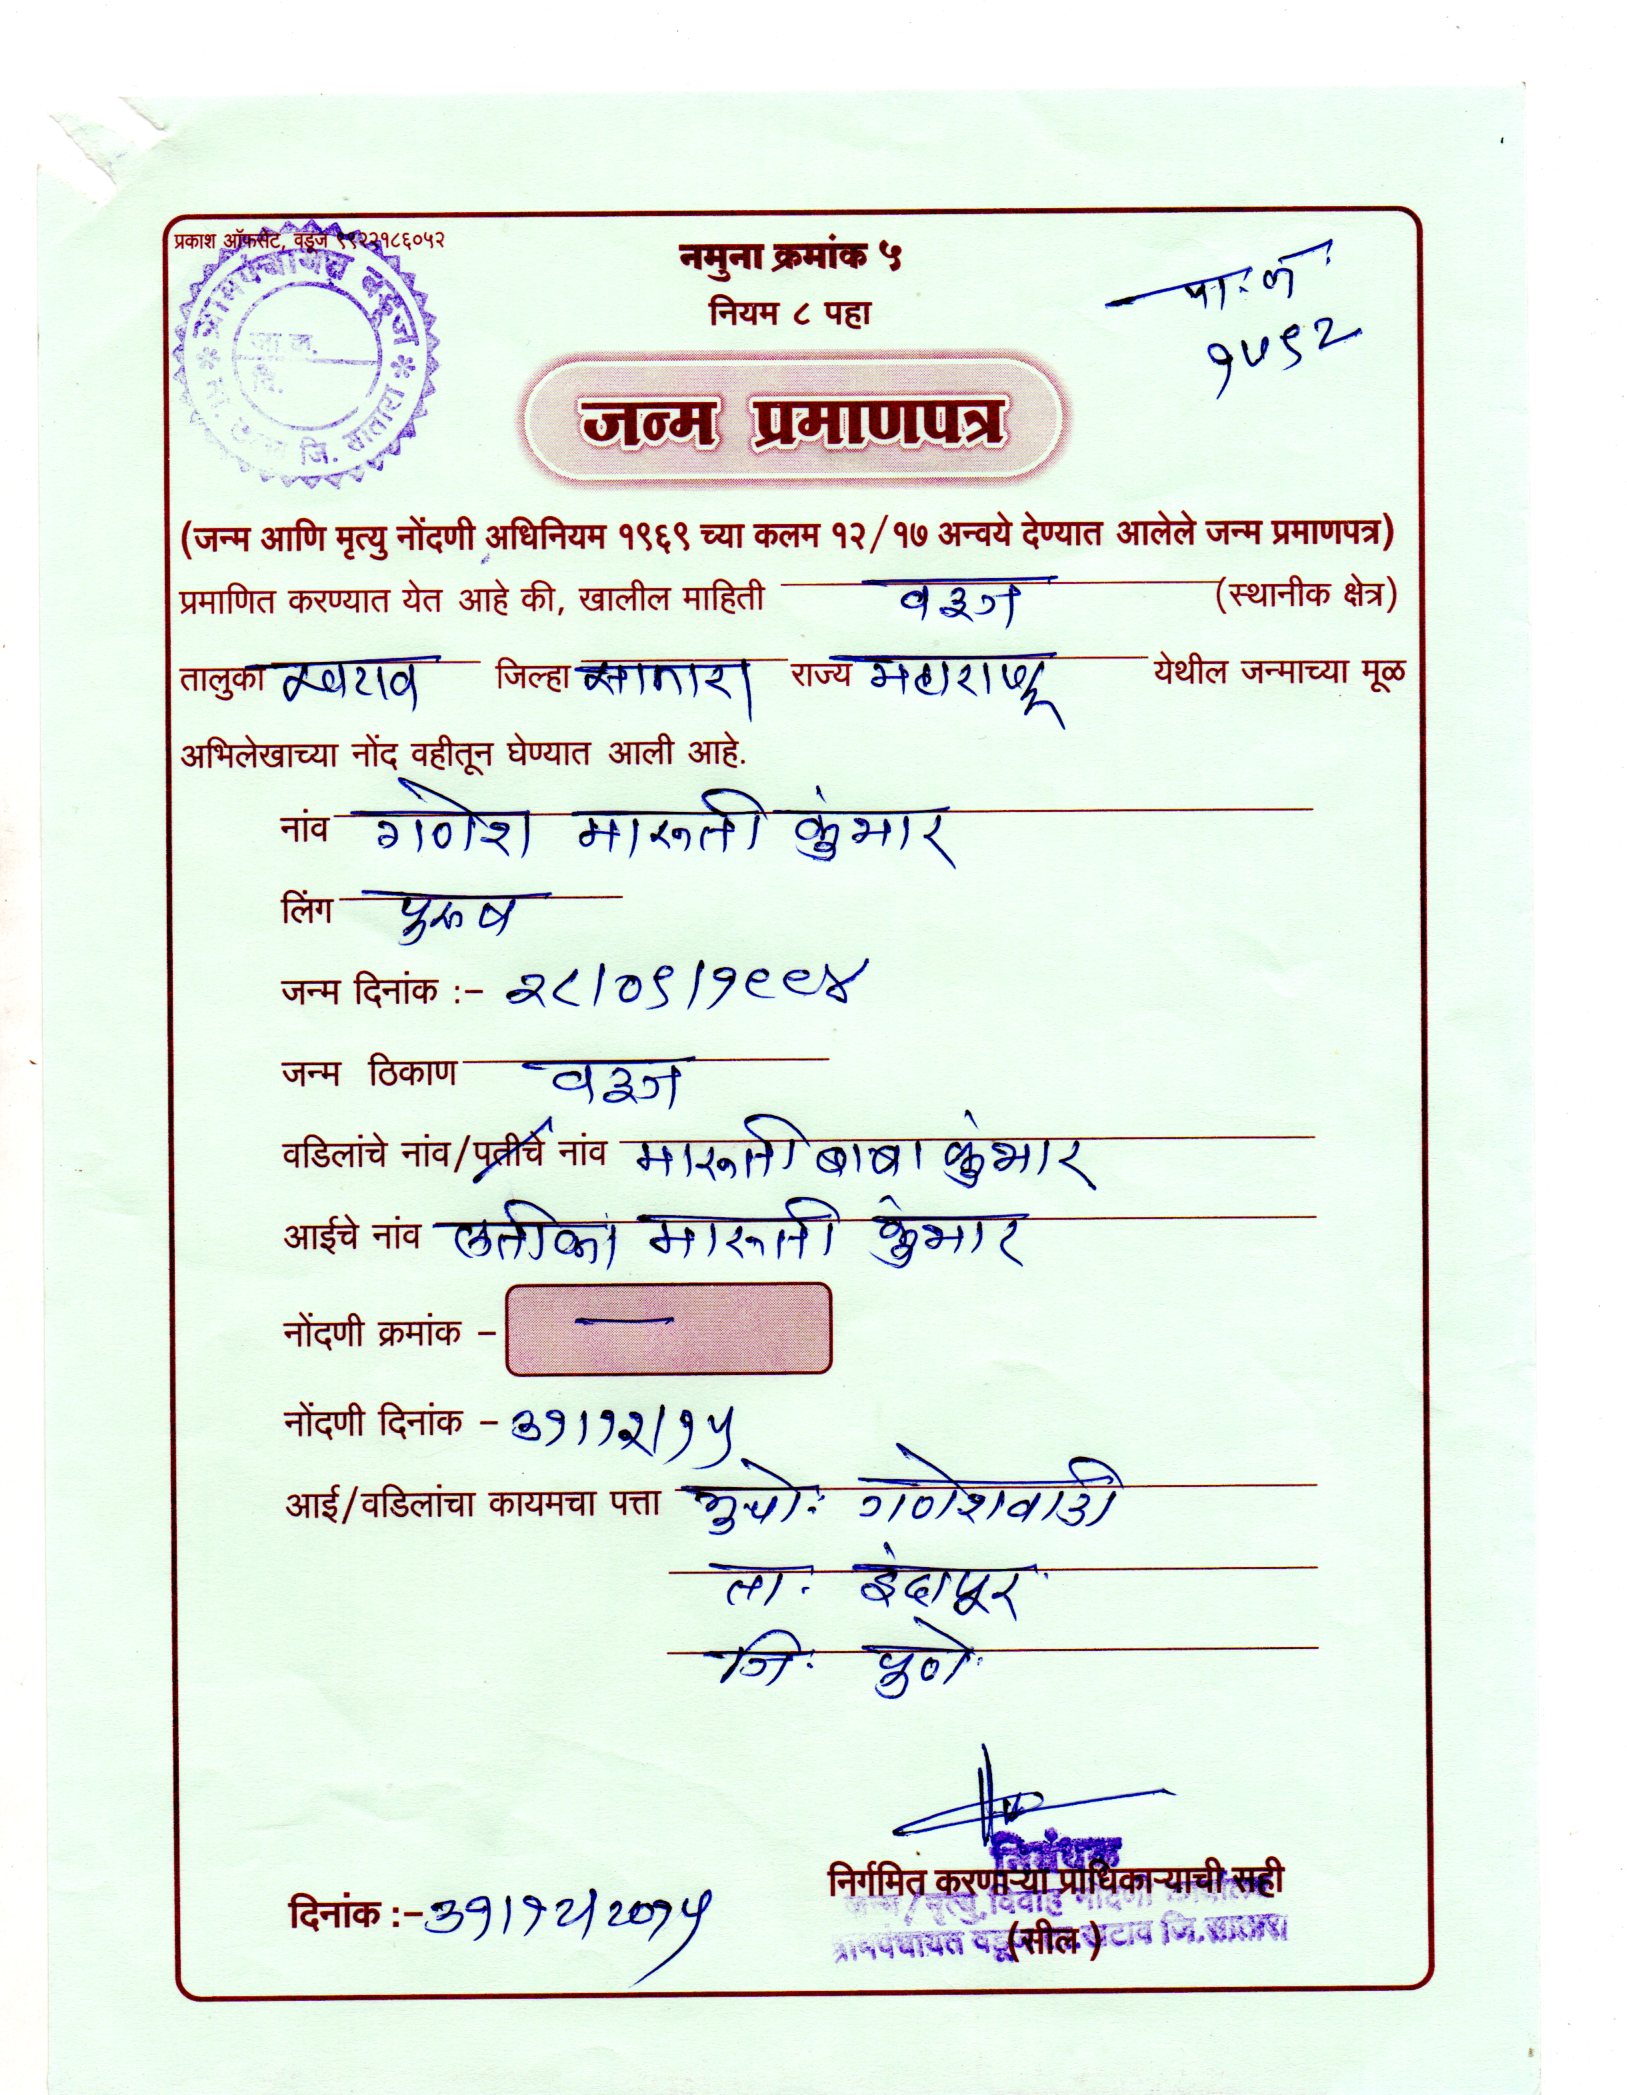 प्रकाश ऑफसेट, वडूज ९९२२१८६०५२
ग्रामपंचायत वडूज
जा.क्र.
दि.
जि. सातारा
नमुना क्रमांक ५
नियम ८ पहा
पा. नं.
१५९२
जन्म प्रमाणपत्र
(जन्म आणि मृत्यु नोंदणी अधिनियम १९६९ च्या कलम १२/१७ अन्वये देण्यात आलेले जन्म प्रमाणपत्र)
प्रमाणित करण्यात येत आहे की, खालील माहिती वडूज (स्थानीक क्षेत्र)
तालुका खटाव जिल्हा सातारा राज्य महाराष्ट्र येथील जन्माच्या मूळ
अभिलेखाच्या नोंद वहीतून घेण्यात आली आहे.
नांव गणेश मारुती कुंभार
लिंग पुरुष
जन्म दिनांक :- २८/०९/१९९४
जन्म ठिकाण वडूज
वडिलांचे नांव/पतीचे नांव मारुती बाबा कुंभार
आईचे नांव लतीका मारुती कुंभार
नोंदणी क्रमांक - —
नोंदणी दिनांक - ३१/१२/१५
आई/वडिलांचा कायमचा पत्ता मु.पो. गणेशवाडी
ता. इंदापूर
जि. पुणे
निबंधक
निर्गमित करणाऱ्या प्राधिकाऱ्याची सही
जन्म/मृत्यु, विवाह नोंदणी
दिनांक :- ३१/१२/२०१५
(सील)
ग्रामपंचायत वडूज खटाव जि.सातारा